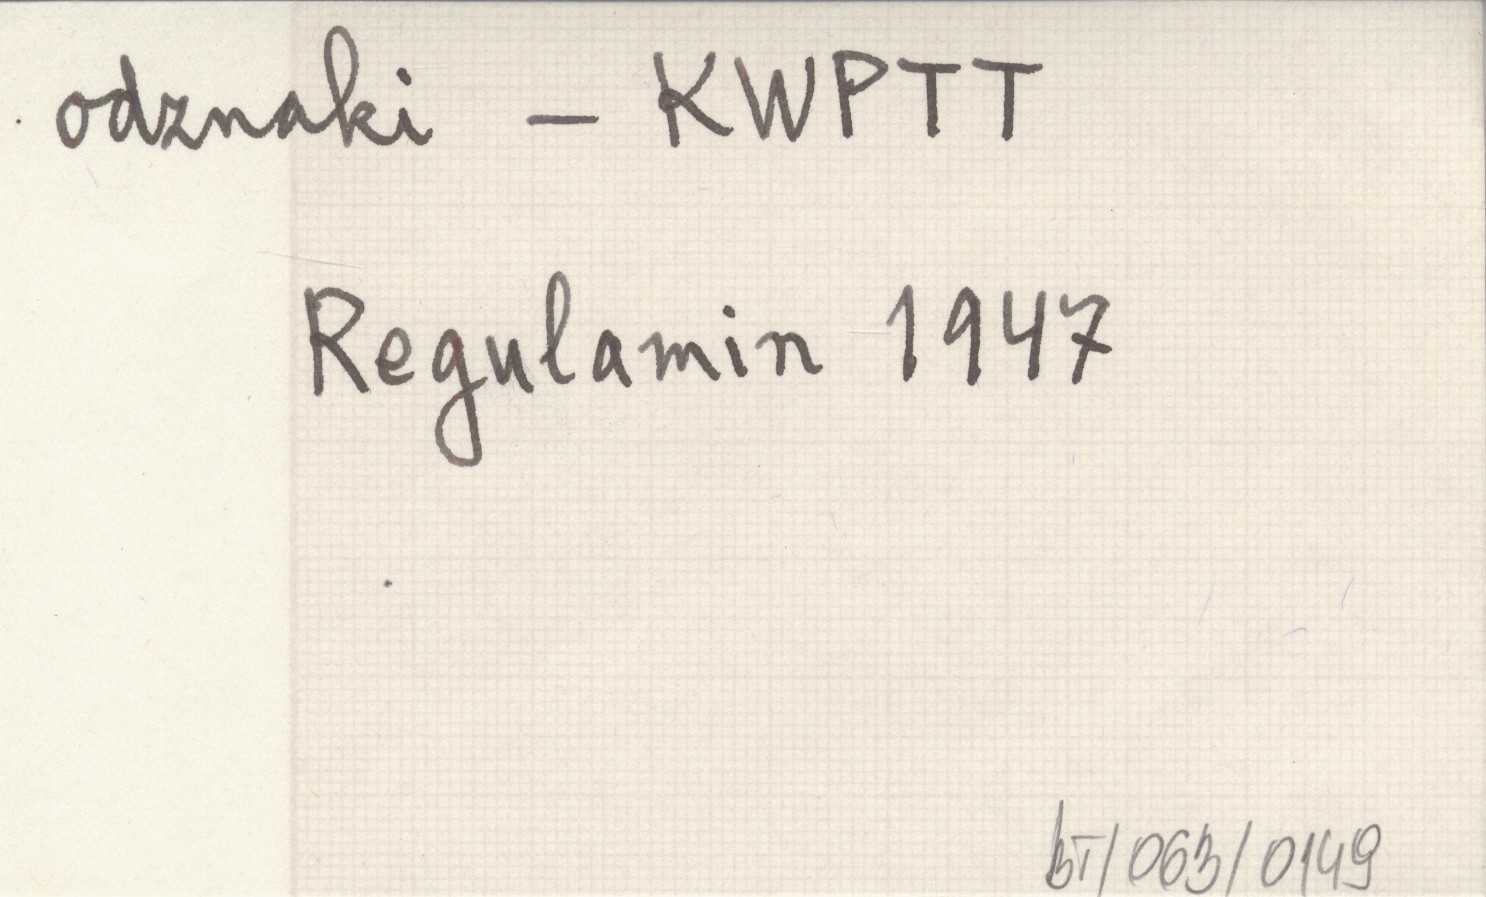 odznaki – KWPTT
Regulamin 1947
BT/063/0149